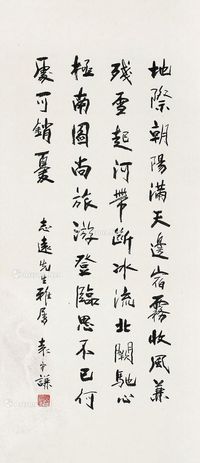 地際朝陽滿天邊宿霧收風兼
殘雪起河帶斷冰流北闕馳心
極南圖尚旅游登臨思不已何
處可銷憂
志遠先生雅屬 袁守謙